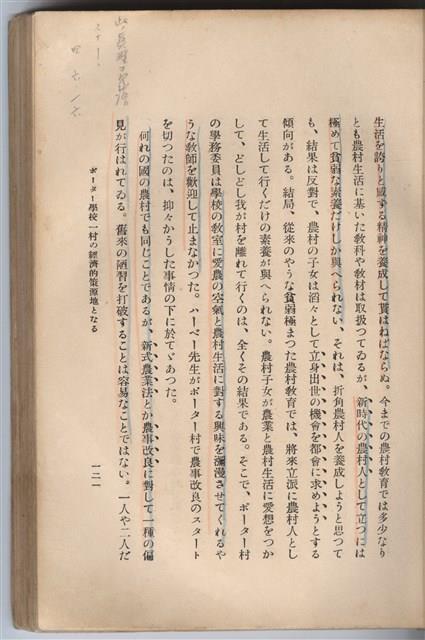 生活を誇りと感ずる精神を養成して貰はねばならぬ。今までの農村教育では多少なり
とも農村生活に基いた教科や教材は取扱つてゐるが、新時代の農村人として立つには
極めて貧弱な素養だけしか與へられない、それは、折角農村人を養成しようと思つて
も、結果は反對で、農村の子女は滔々として立身出世の機會を都會に求めようとする
傾向がある。結局、從來のやうな貧弱極まつた農村教育では、將來立派に農村人とし
て生活して行くだけの素養が與へられない。農村子女が農業と農村生活に愛想をつか
して、どしどし我が村を離れて行くのは、全くその結果である。そこで、ポーター村
の學務委員は學校の教室に愛農の空氣と農村生活に對する興味を瀰漫させてくれるや
うな教師を歡迎して止まなかつた。ハーベー先生がポーター村で農事改良のスタート
を切つたのは、抑々かうした事情の下に於てゞあつた。
何れの國の農村でも同じことであるが、新式農業法とか農事改良に對して一種の偏
見が行はれてゐる。舊來の陋習を打破することは容易なことではない。一人や二人だ
ポーター學校―村の經濟的策源地となる
一二一